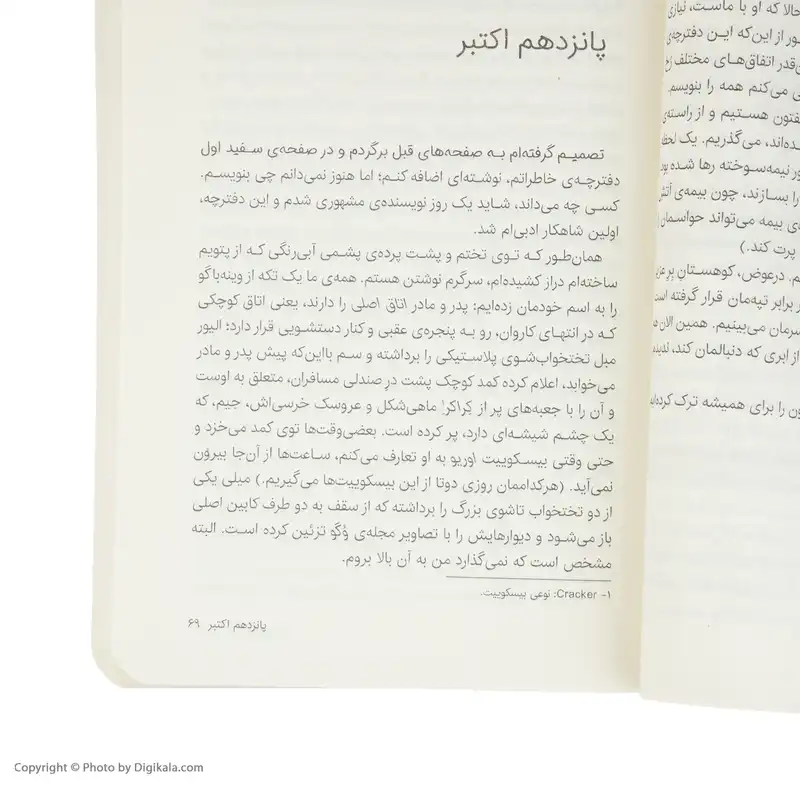 حالا که او با ماست، نیازی
ور از این‌که ایـن دفترچه‌ی
‌قدر اتفاق‌هـای مختلف رخ
می‌کنم همه را بنویسم.
فتون هسـتیم و از راسته‌ی
ده‌اند، می‌گذریم. یک لحظه
ور نیمه‌سـوخته رها شده بود
را بسازند، چون بیمه‌ی آتش
ی بیمه می‌تواند حواسمان
پرت کند.)
م. درعوض، کوهستانِ پر
برابر تپه‌مان قرار گرفته است
سرمان می‌بینیم. همین الان
از ابری که دنبالمان کند، ندیدم
ون را برای همیشه ترک کرده‌ایم
پانزدهم اکتبر
تصمیـم گرفته‌ام بـه صفحه‌های قبل برگردم و در صفحه‌ی سـفید اول
دفترچـه‌ی خاطراتم، نوشته‌ای اضافه کنـم؛ اما هنوز نمی‌دانم چی بنویسـم.
کسـی چه می‌داند، شـاید یک روز نویسنده‌ی مشهوری شدم و این دفترچه،
اولین شاهکار ادبی‌ام شد.
همان‌طور کـه توی تختم و پشـت پرده‌ی پشـمی آبی‌رنگی کـه از پتویم
ساخته‌ام دراز کشیده‌ام، سرگرم نوشتن هستم. همه‌ی ما یک تکه از وینه‌باگو
را به اسم خودمان زده‌ایم: پدر و مادر اتاق اصلی را دارند، یعنی اتاق کوچکی
کـه در انتهـای کاروان، رو بـه پنجره‌ی عقبی و کنار دستشـویی قرار دارد؛ الیور
مبل تختخواب‌شوی پلاستیکی را برداشته و سـم بااین‌که پیش پدر و مادر
می‌خوابد، اعلام کرده کمد کوچک پشت درِ صندلی مسافران، متعلق به اوست
و آن را با جعبه‌های پر از کِراکر۱ ماهی‌شکل و عروسک خرسی‌اش، جیم، که
یک چشـم شیشه‌ای دارد، پر کرده است. بعضی‌وقت‌ها توی کمد می‌خزد و
حتی وقتی بیسـکوییت اوریو به او تعارف می‌کنم، سـاعت‌ها از آن‌جا بیرون
نمی‌آید. (هرکداممان روزی دوتا از این بیسکوییت‌ها می‌گیریم.) میلی یکی
از دو تختخواب تاشوی بزرگ را برداشته که از سقف به دو طرف کابین اصلی
باز می‌شـود و دیوارهایش را با تصاویر مجله‌ی وُگو تزئین کرده اسـت. البته
مشخص است که نمی‌گذارد من به آن بالا بروم.
۱- Cracker: نوعی بیسکوییت.
پانزدهم اکتبر ۶۹
Copyright © Photo by Digikala.com